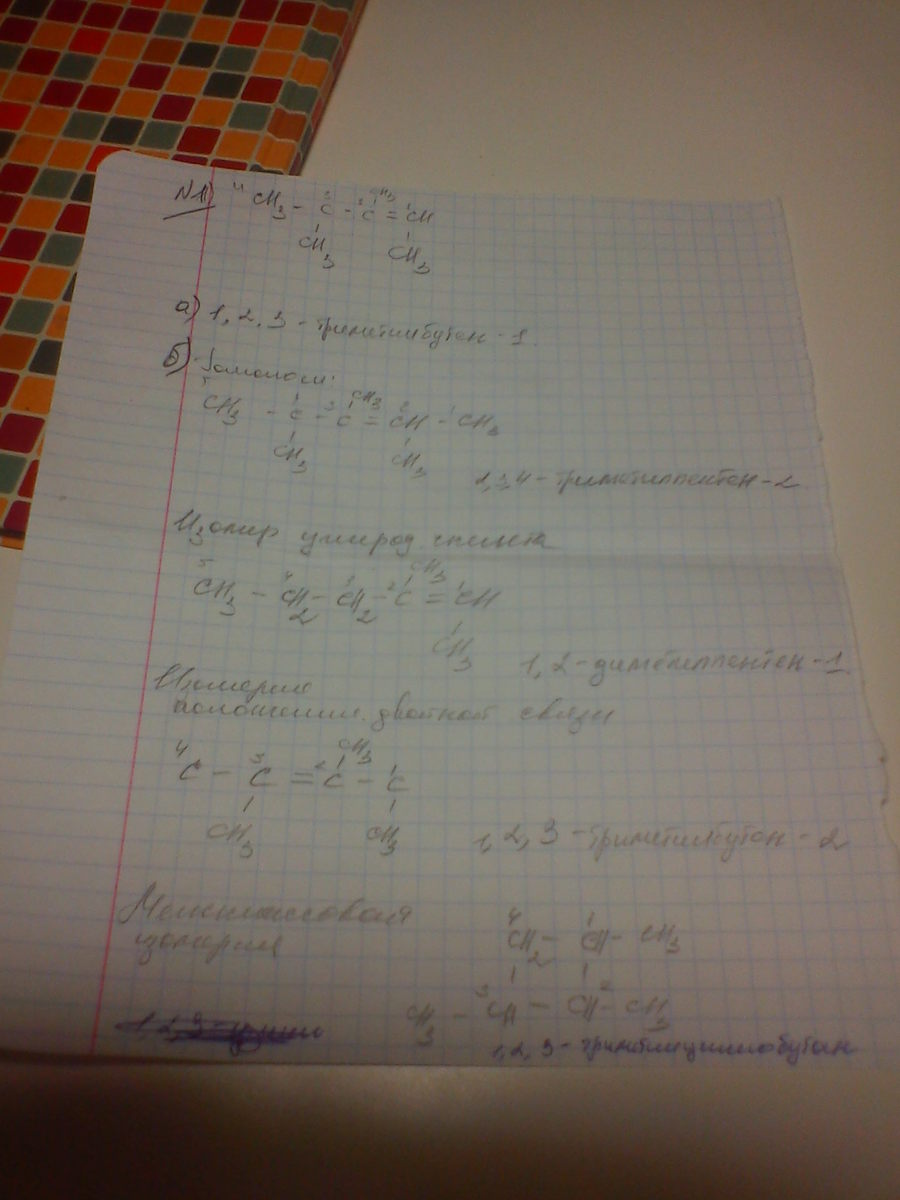 N1
4 CH3 - 3C - 2C = 1CH
CH3
CH3 CH3
а) 1, 2, 3 - триметилбутен - 1.
б) Гомологи:
CH3
5CH3 - C - 3C = 2CH - 1CH3
CH3 CH3
2,3,4 - триметилпентен - 2
Изомер углерод. скелета
CH3
5CH3 - 4CH2 - CH2 - 2C = 1CH
CH3
1, 2 - диметилпентен - 1
Изомерия
положения двойной связи
CH3
4C - 3C = 2C - 1C
CH3 CH3
1, 2, 3 - триметилбутен - 2
Межклассовая
изомерия
4CH2 - 1CH - CH3
CH3 - 3CH - CH2 - CH3
1, 2, 3 - триметилциклобутан